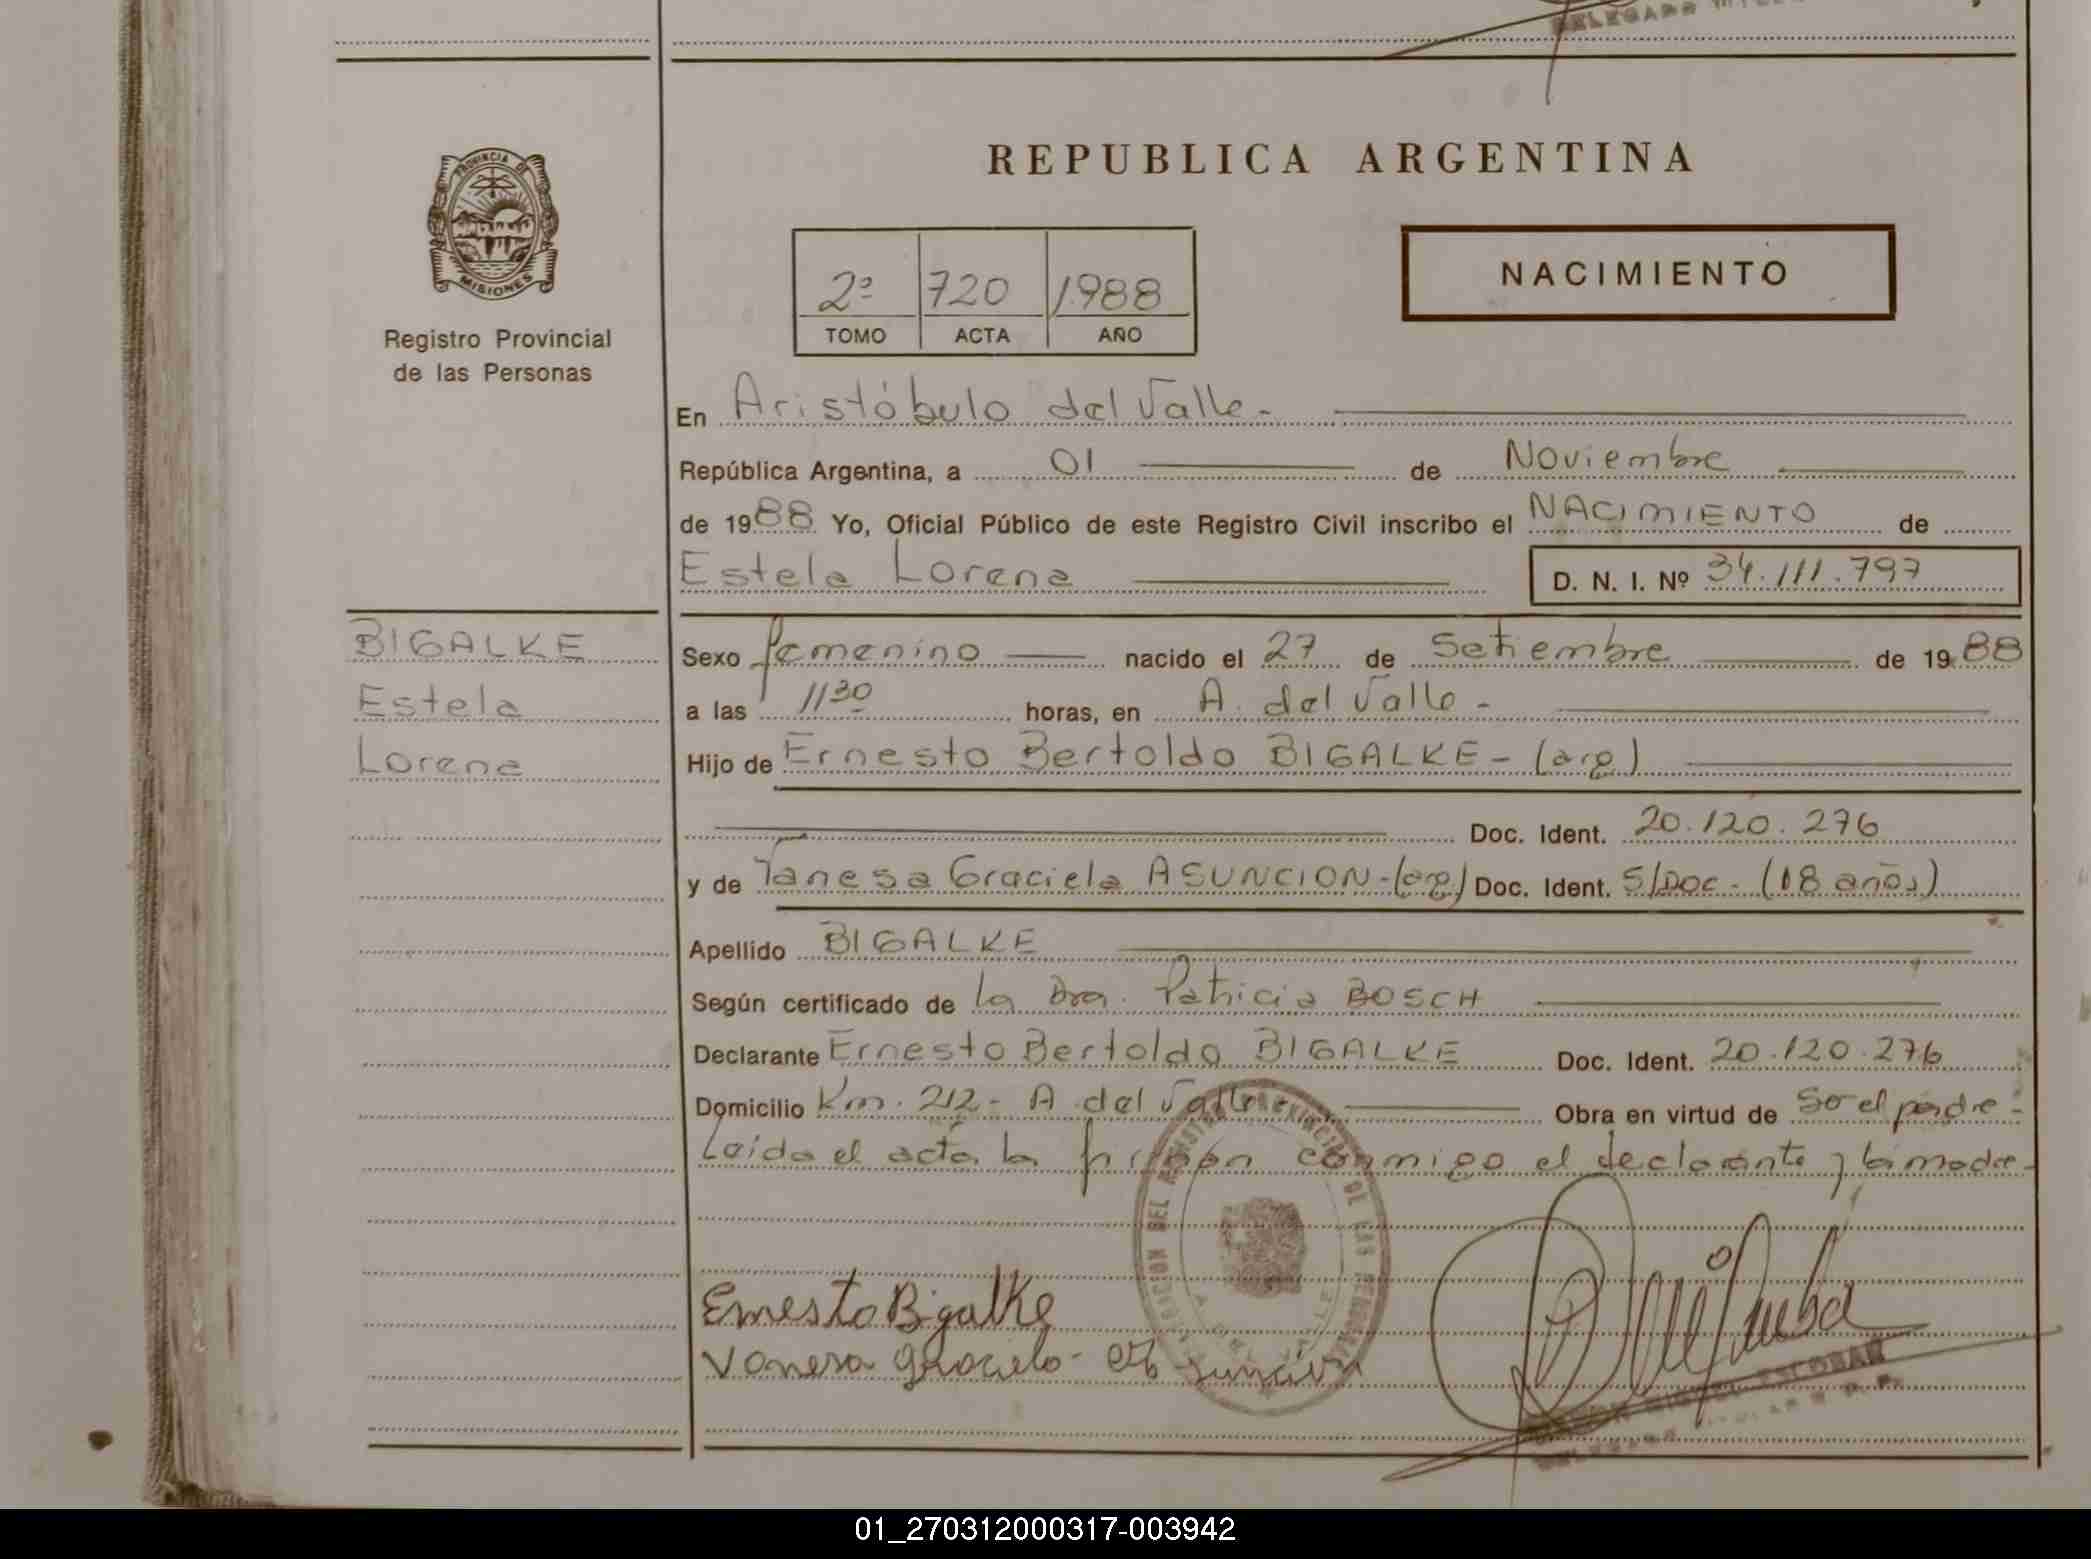 DELEGADO
REPUBLICA ARGENTINA
PROVINCIA DE
MISIONES
NACIMIENTO
2º 720 1988
TOMO ACTA AÑO
Registro Provincial
de las Personas
En Aristóbulo del Valle.-
República Argentina, a 01 de Noviembre
de 1988 Yo, Oficial Público de este Registro Civil inscribo el NACIMIENTO de
Estela Lorena D. N. I. Nº 34.111.797
BIGALKE
Estela
Lorena
Sexo femenino nacido el 27 de Setiembre de 1988
a las 11 30 horas, en A. del Valle -
Hijo de Ernesto Bertoldo BIGALKE - (arg)
Doc. Ident. 20.120.276
y de Vanesa Graciela ASUNCION - (arg) Doc. Ident. S/Doc - (18 años)
Apellido BIGALKE
Según certificado de la Dra. Patricia BOSCH
Declarante Ernesto Bertoldo BIGALKE Doc. Ident. 20.120.276
Domicilio Km. 212 - A del Valle - Obra en virtud de So el padre -
Leída el acta la firman conmigo el declarante y la madre -
Ernesto Bigalke
Vanesa Graciela
ESCOBAR
01_270312000317-003942